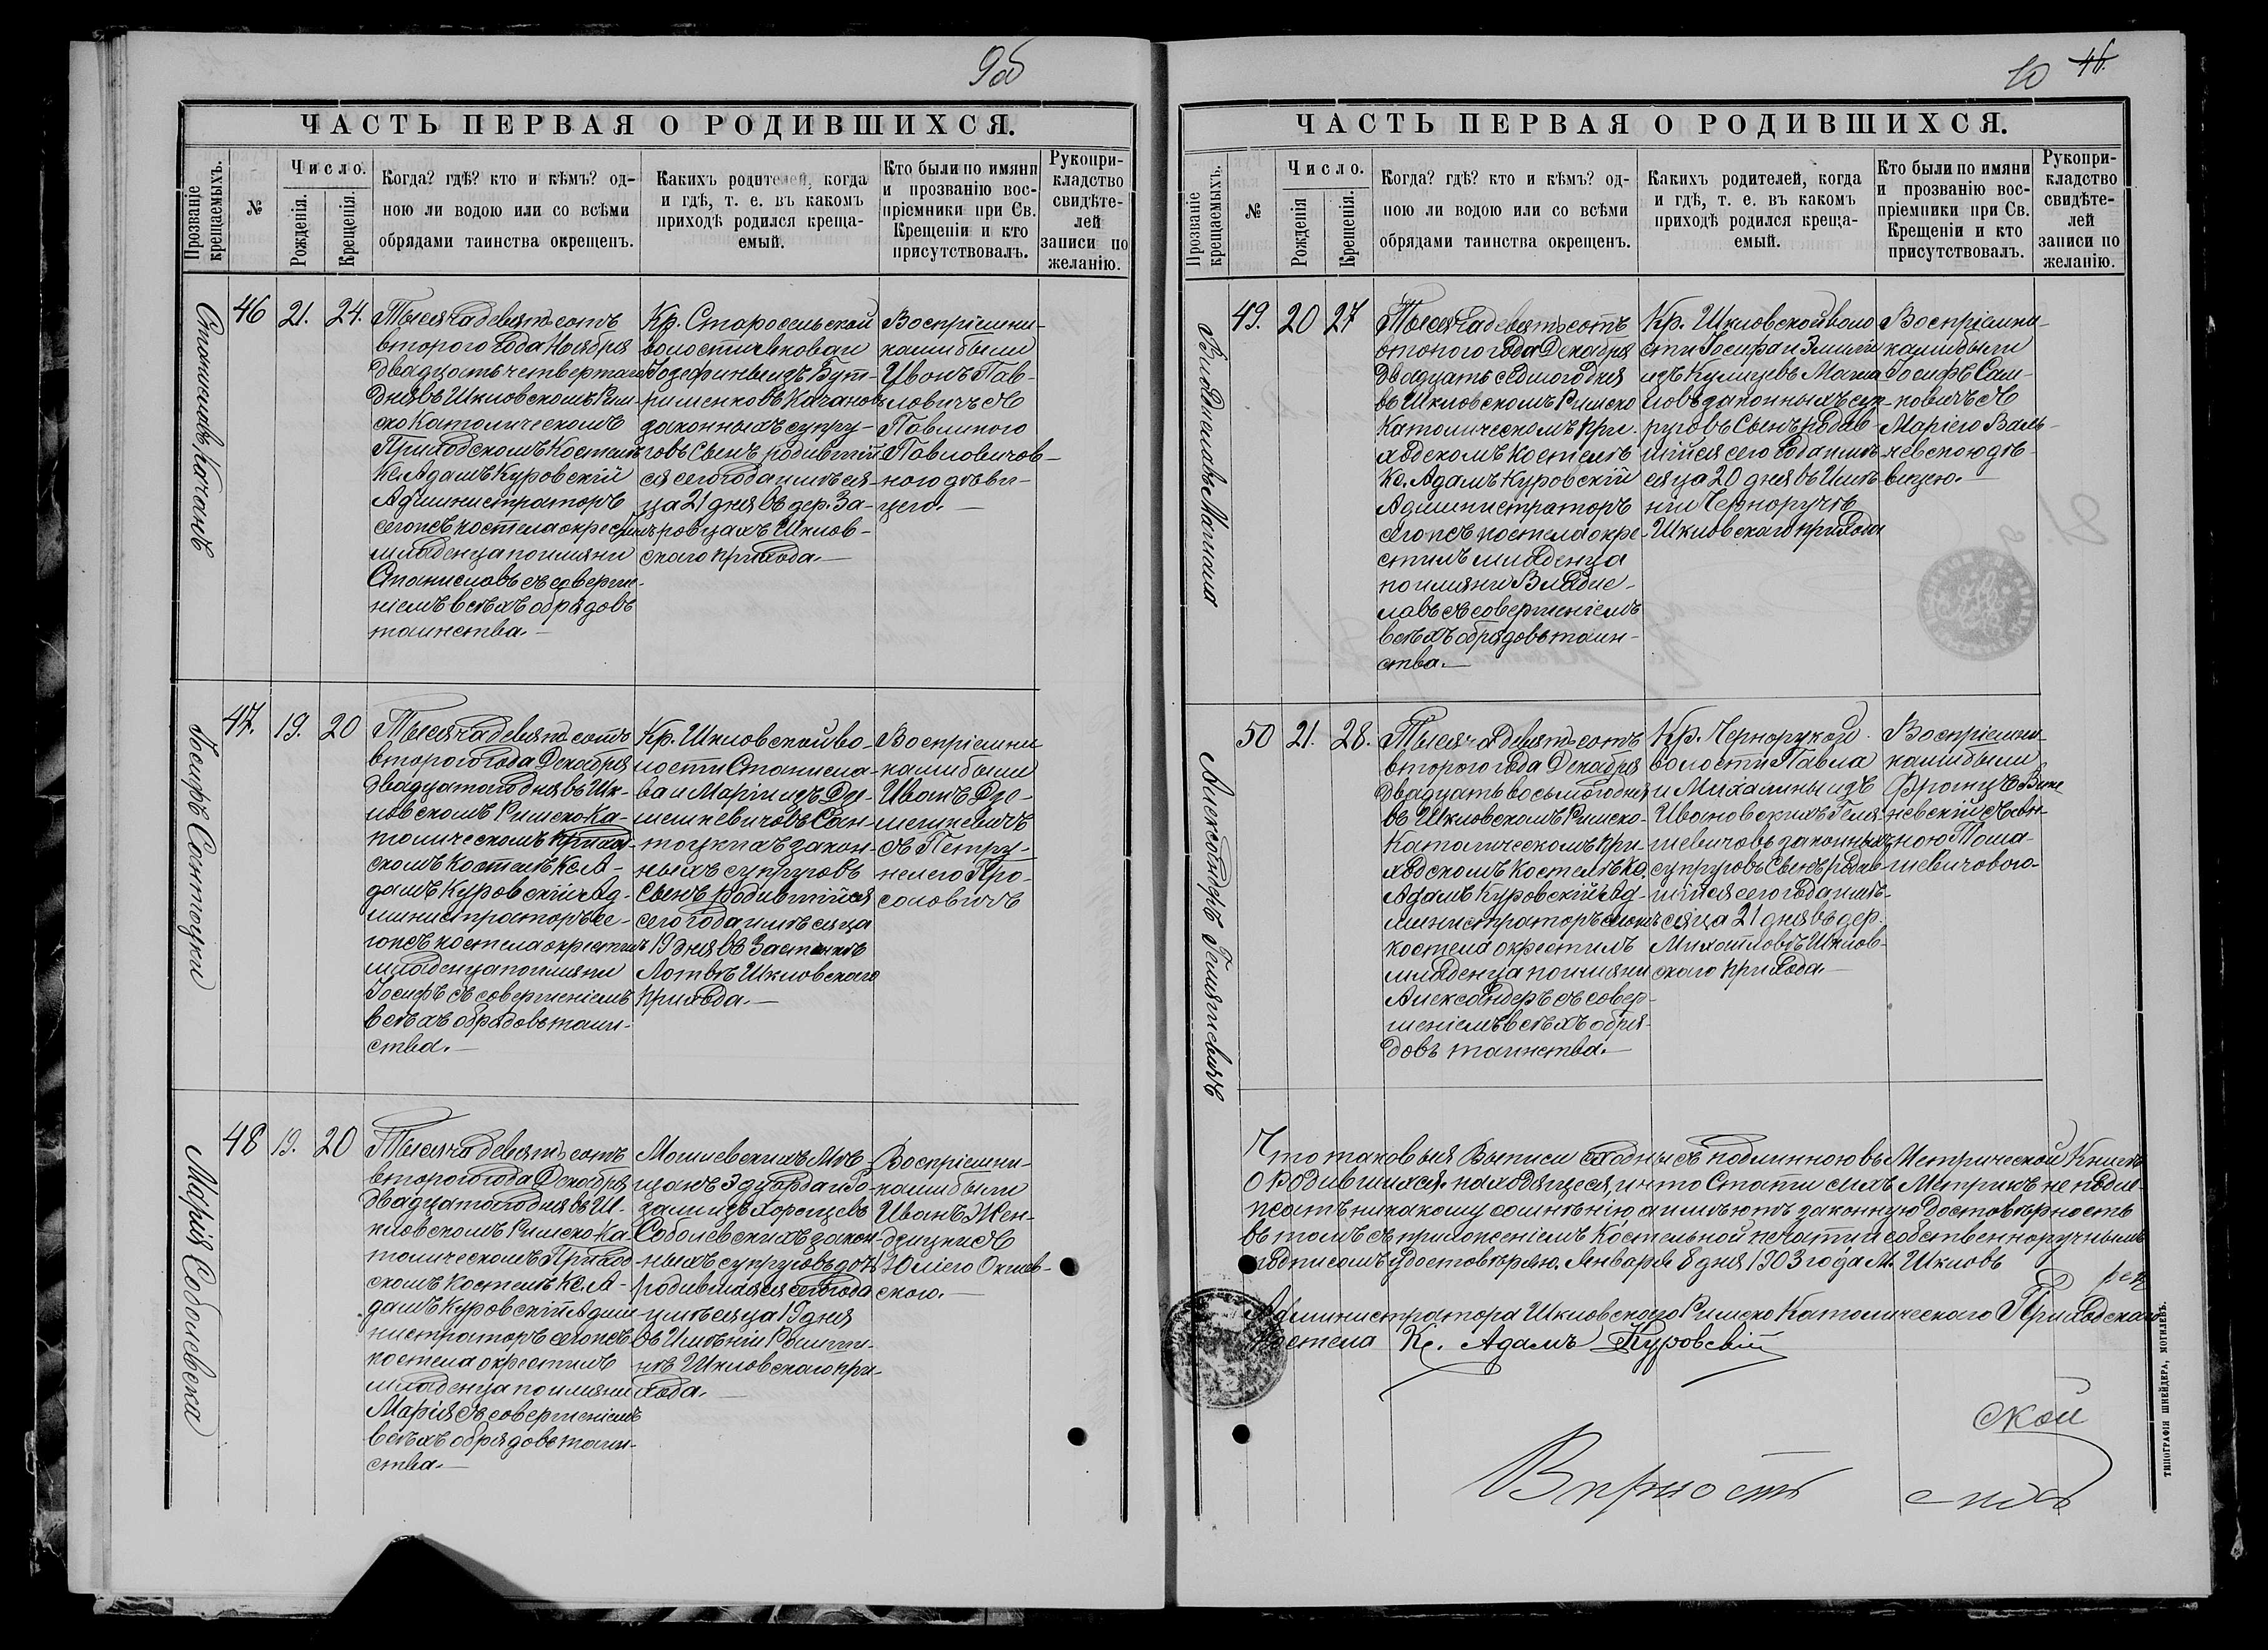 9об
ЧАСТЬ ПЕРВАЯ О РОДИВШИХСЯ.
Прозваніе крещаемыхъ.
№
Число.
Рожденія.
Крещенія.
Когда? гдѣ? кто и кѣмъ? од-
ною ли водою или со всѣми
обрядами таинства окрещенъ.
Какихъ родителей, когда
и гдѣ, т. е. въ какомъ
приходѣ родился креща-
емый.
Кто были по имяни
и прозванію вос-
пріемники при Св.
Крещеніи и кто
присутствовалъ.
Рукопри-
кладство
свидѣте-
лей
записи по
желанію.
Станиславъ Качанъ
46
21.
24.
Тысяча девятьсотъ
второго года Ноября
двадцать четвертаго
дня въ Шкловскомъ Рим-
ско Католическомъ
Приходскомъ Костелѣ
Кс. Адамъ Куровскій
Администраторъ
сегожъ костела окрестилъ
младенца по имяни
Станиславъ съ соверше-
ніемъ всѣхъ обрядовъ
таинства.—
Кр. Старосельской
волости Якова и
Іозефины изъ Бут-
рименковъ Качановъ
законныхъ супру-
говъ сынъ родившій-
ся сего года и мѣся-
ца 21 дня въ дер. За-
ровцахъ Шклов-
скаго прихода.—
Воспріемни-
ками были
Иванъ Пав-
ловичъ съ
Павлиною
Павловичов-
ною дѣви-
цею.—
Іосифъ Сантоцки
47.
19.
20
Тысяча девятьсотъ
второго года Декабря
двадцатого дня въ Шк-
ловскомъ Римско Ка-
толическомъ Приход-
скомъ костелѣ Кс. А-
дамъ Куровскій Ад-
министраторъ се-
гожъ костела окрестилъ
младенца по имяни
Іосифъ съ совершеніемъ
всѣхъ обрядовъ таин-
ства.—
Кр. Шкловской во-
лости Станисла-
ва и Маріи изъ Дзе-
мешкевичовъ Сан-
тоцкихъ закон-
ныхъ супруговъ
сынъ родившійся
сего года и мѣсяца
19 дня въ Застѣнкѣ
Лотвѣ Шкловскаго
прихода.—
Воспріемни-
ками были
Иванъ Дзе-
мешкевичъ
съ Петру-
нелею Про-
соловичъ
Марія Соболевска
48
19.
20
Тысяча девятьсотъ
второго года Декабря
двадцатого дня въ Ш-
кловскомъ Римско Ка-
толическомъ Приход-
скомъ костелѣ Кс. А-
дамъ Куровскій Адми-
нистраторъ сегожъ
костела окрестилъ
младенца по имяни
Марія съ совершеніемъ
всѣхъ обрядовъ таин-
ства.—
Могилевскихъ Мѣ-
щанъ Эдуарда и Ро-
заліи изъ Хорощевъ
Соболевскихъ закон-
ныхъ супруговъ дочь
родившаяся сего года
и мѣсяца 19 дня
въ Имѣніи
Шкловскаго при-
хода.—
Воспріемни-
ками были
Иванъ Жен-
дзицки съ
Юліею
скою.—
10
46.
ЧАСТЬ ПЕРВАЯ О РОДИВШИХСЯ.
Прозваніе крещаемыхъ.
№
Число.
Рожденія
Крещенія.
Когда? гдѣ? кто и кѣмъ? од-
ною ли водою или со всѣми
обрядами таинства окрещенъ.
Какихъ родителей, когда
и гдѣ, т. е. въ какомъ
приходѣ родился креща-
емый.
Кто были по имяни
и прозванію вос-
пріемники при Св.
Крещеніи и кто
присутствовалъ.
Рукопри-
кладство
свидѣте-
лей
записи по
желанію.
Владиславъ Магмала
49.
20
27
Тысяча девятьсотъ
второго года Декабря
двадцать седмого дня
въ Шкловскомъ Римско
Католическомъ При-
ходскомъ костелѣ
Кс. Адамъ Куровскій
Администраторъ
сегожъ костела окре-
стилъ младенца
по имяни Владис-
лавъ съ совершеніемъ
всѣхъ обрядовъ таин-
ства.—
Кр. Шкловской воло
сти Іосифа и Эмиліи
изъ
законныхъ суп-
руговъ сынъ родив-
шійся сего года и мѣ-
сяца 20 дня въ Имѣ-
ніи Чернoручьѣ
Шкловскаго прихода
Воспріемни-
ками были
Іосифъ Сам-
ковичъ съ
Маріею Валь-
невскою дѣ-
вицею.—
Александеръ Гемяшевичъ
50
21.
28.
Тысяча девятьсотъ
второго года Декабря
двадцать восьмого дня
въ Шкловскомъ Римско-
Католическомъ При-
ходскомъ Костелѣ Кс.
Адамъ Куровскій Ад-
министраторъ сегожъ
костела окрестилъ
младенца по имяни
Александеръ съ совер-
шеніемъ всѣхъ обря-
довъ таинства.—
Кр. Чернoруцкой
волости Павла
и Михалины изъ
Ивановскихъ Гемя-
шевичовъ законныхъ
супруговъ сынъ родив-
шійся сего года и мѣ-
сяца 21 дня въ дер.
Михайловѣ Шклов-
скаго прихода.—
Воспріемни-
ками были
Францъ
невскій съ Ан-
ною Тома-
шевичовою
Что таковыя Выписи сходны съ подлинною въ Метрической Книгѣ
о Родившихся находящеюся, и что Статьи сихъ Метрикъ не подле-
жатъ никакому сомнѣнію а имѣютъ законную достовѣрность
въ томъ съ приложеніемъ Костельной печати и собственноручнымъ
подписомъ удостовѣряю. Января 8 дня 1903 года М. Шкловъ
Администратора Шкловскаго Римско Католическаго Приходскаго
Костела Кс. Адамъ Куровскій
ской
Вѣрность
ТИПОГРАФІЯ ШНЕЙДЕРА, МОГИЛЕВЪ.